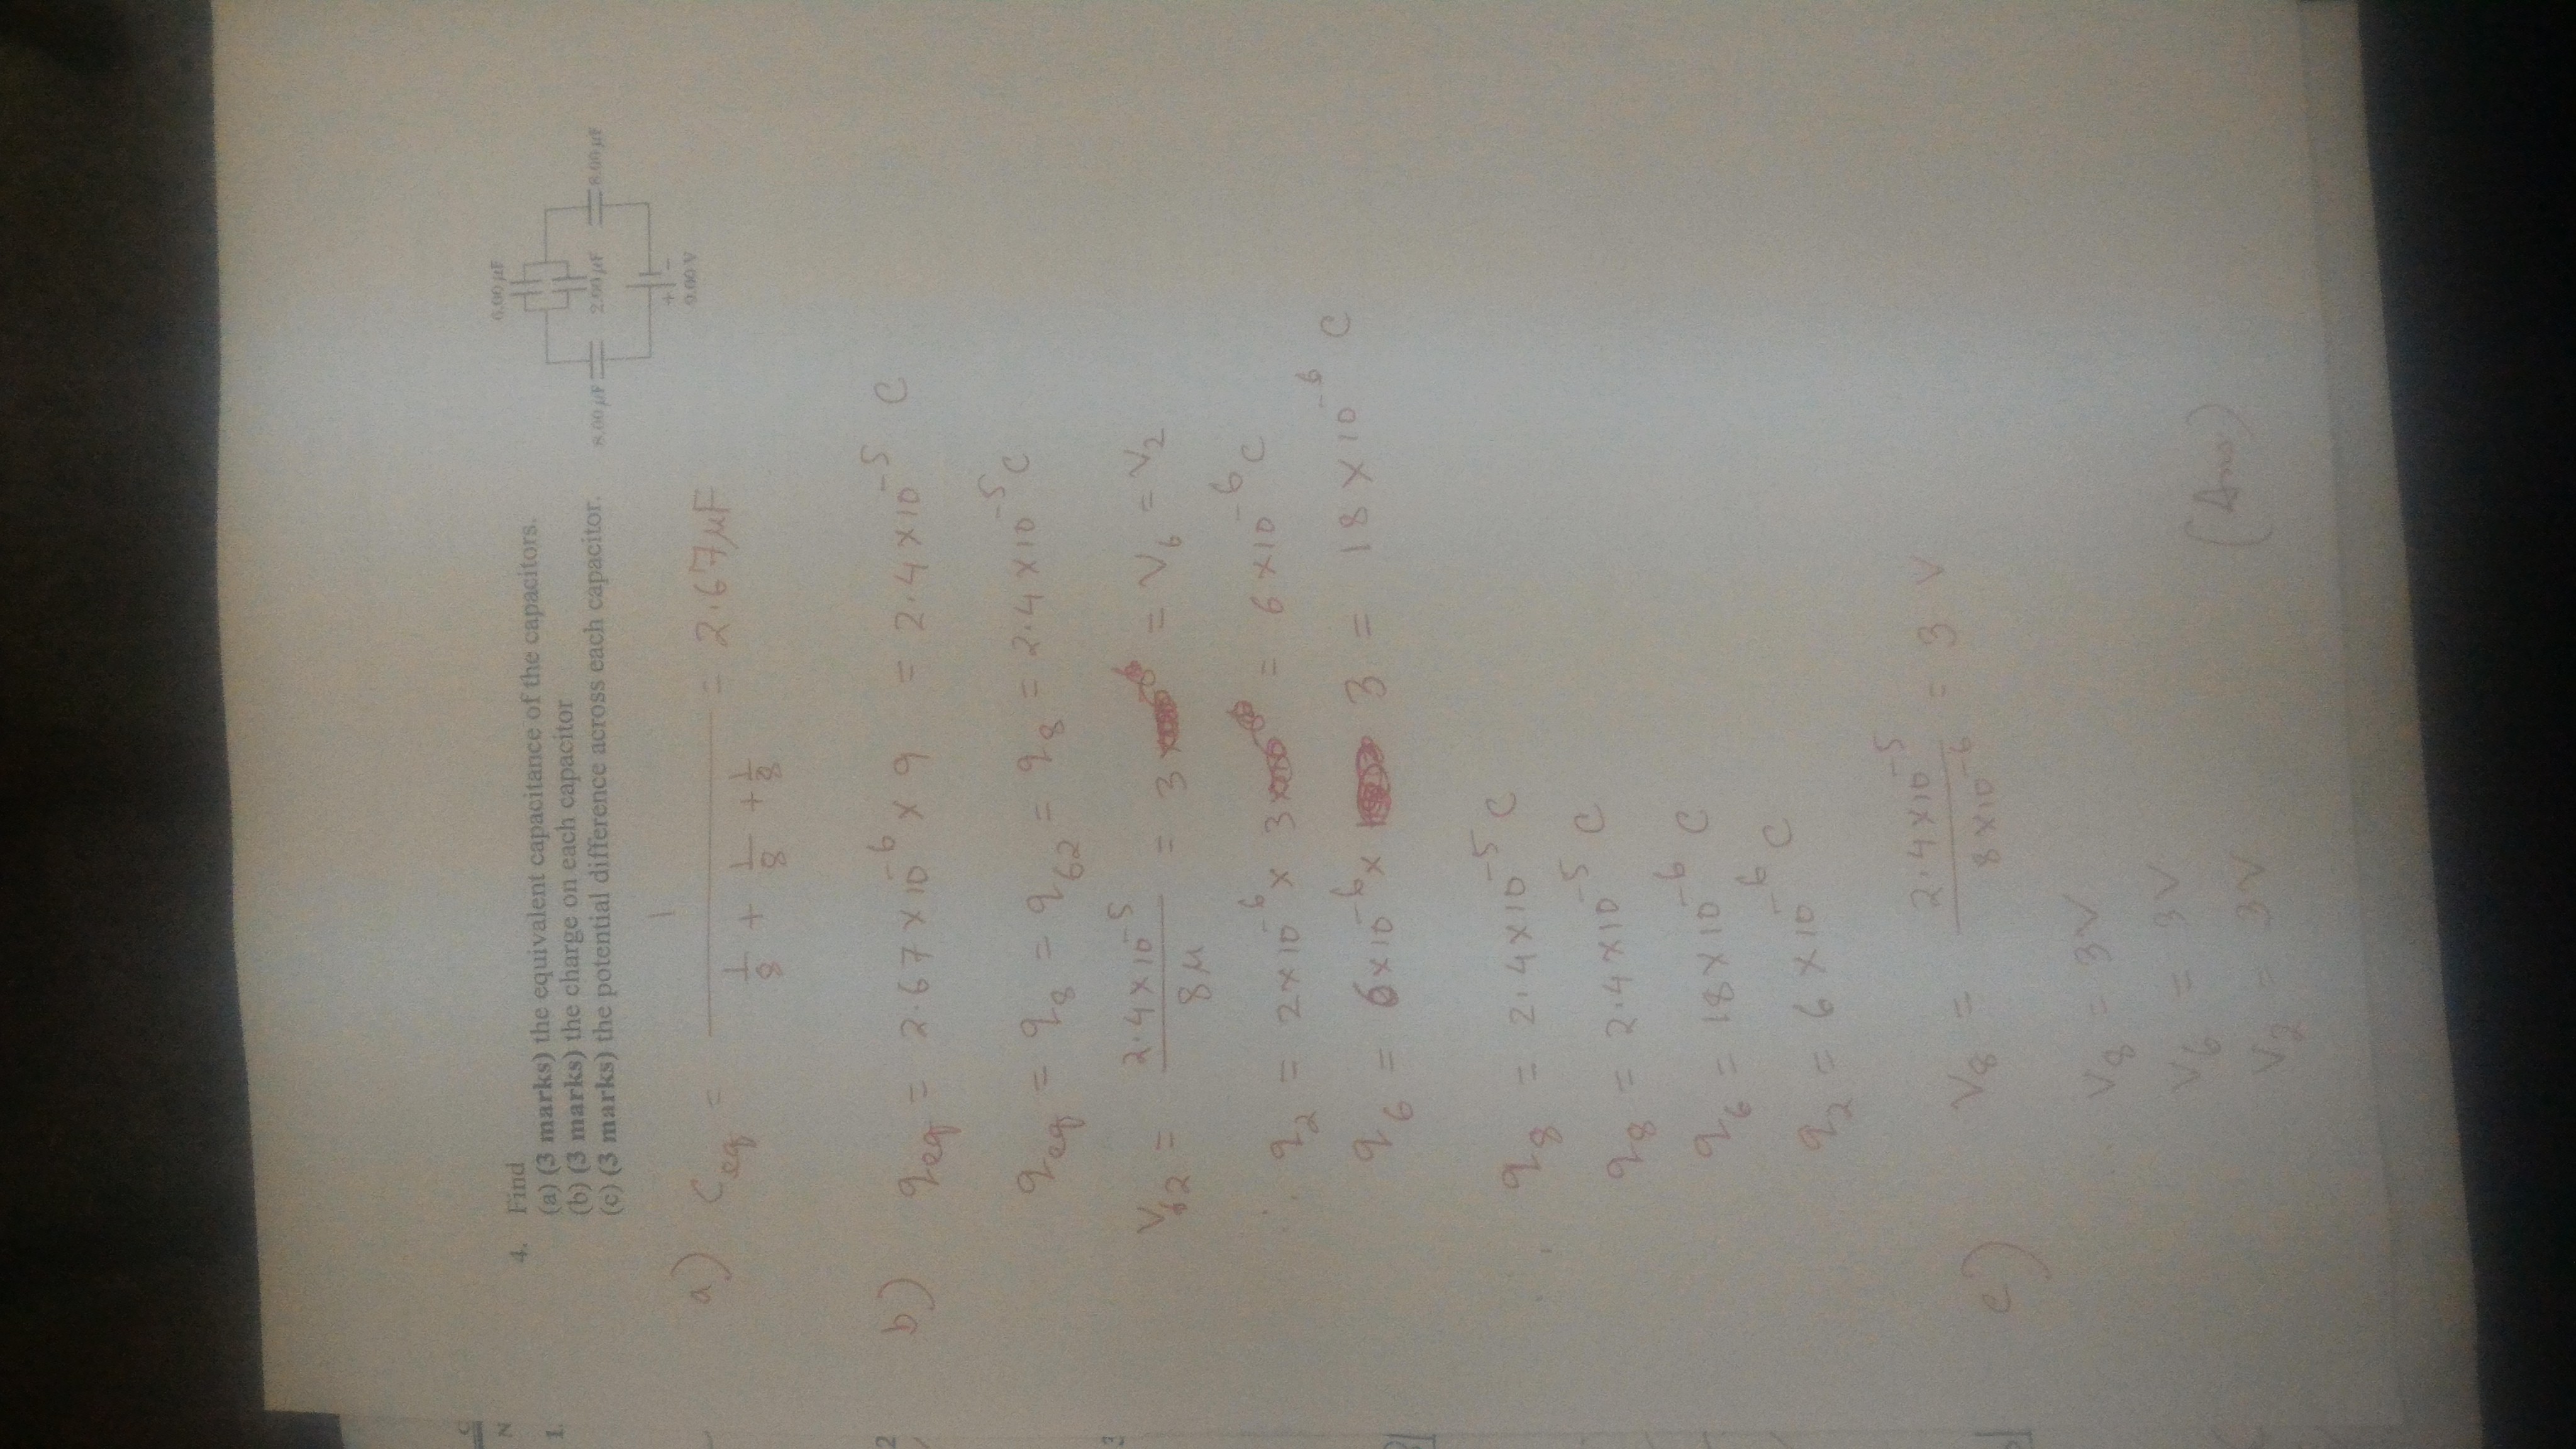 4. Find
(a) (3 marks) the equivalent capacitance of the capacitors.
(b) (3 marks) the charge on each capacitor
(c) (3 marks) the potential difference across each capacitor.
6.00 μF
8.00 μF
2.00 μF
8.00 μF
+ −
9.00 V
a) Ceq = 1 / (1/8 + 1/8 + 1/8) = 2.67 μF
b) qeq = 2.67 × 10^-6 × 9 = 2.4 × 10^-5 C
qeq = q8 = q62 = q8 = 2.4 × 10^-5 C
V62 = 2.4 × 10^-5 / 8μ = 3 = V6 = V2
∴ q2 = 2 × 10^-6 × 3 = 6 × 10^-6 C
q6 = 6 × 10^-6 × 3 = 18 × 10^-6 C
q8 = 2.4 × 10^-5 C
q8 = 2.4 × 10^-5 C
q6 = 18 × 10^-6 C
q2 = 6 × 10^-6 C
c) V8 = 2.4 × 10^-5 / 8 × 10^-6 = 3 V
V8 = 3V
V6 = 3V
V2 = 3V
(Ans)
C
N
1.
2